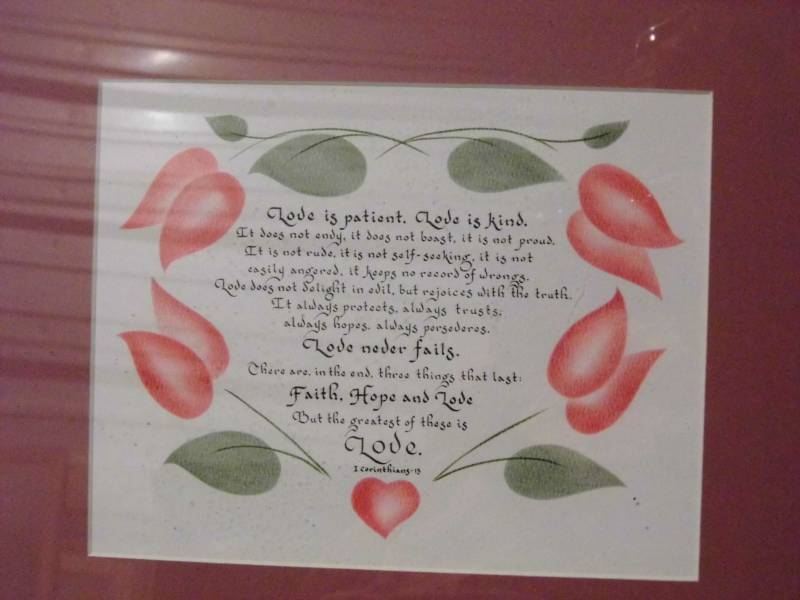 Love is patient. Love is kind.
It does not envy, it does not boast, it is not proud.
It is not rude, it is not self-seeking, it is not
easily angered, it keeps no record of wrongs.
Love does not delight in evil, but rejoices with the truth.
It always protects, always trusts,
always hopes, always perseveres.
Love never fails.
There are, in the end, three things that last:
Faith, Hope and Love
But the greatest of these is
Love.
I Corinthians-13